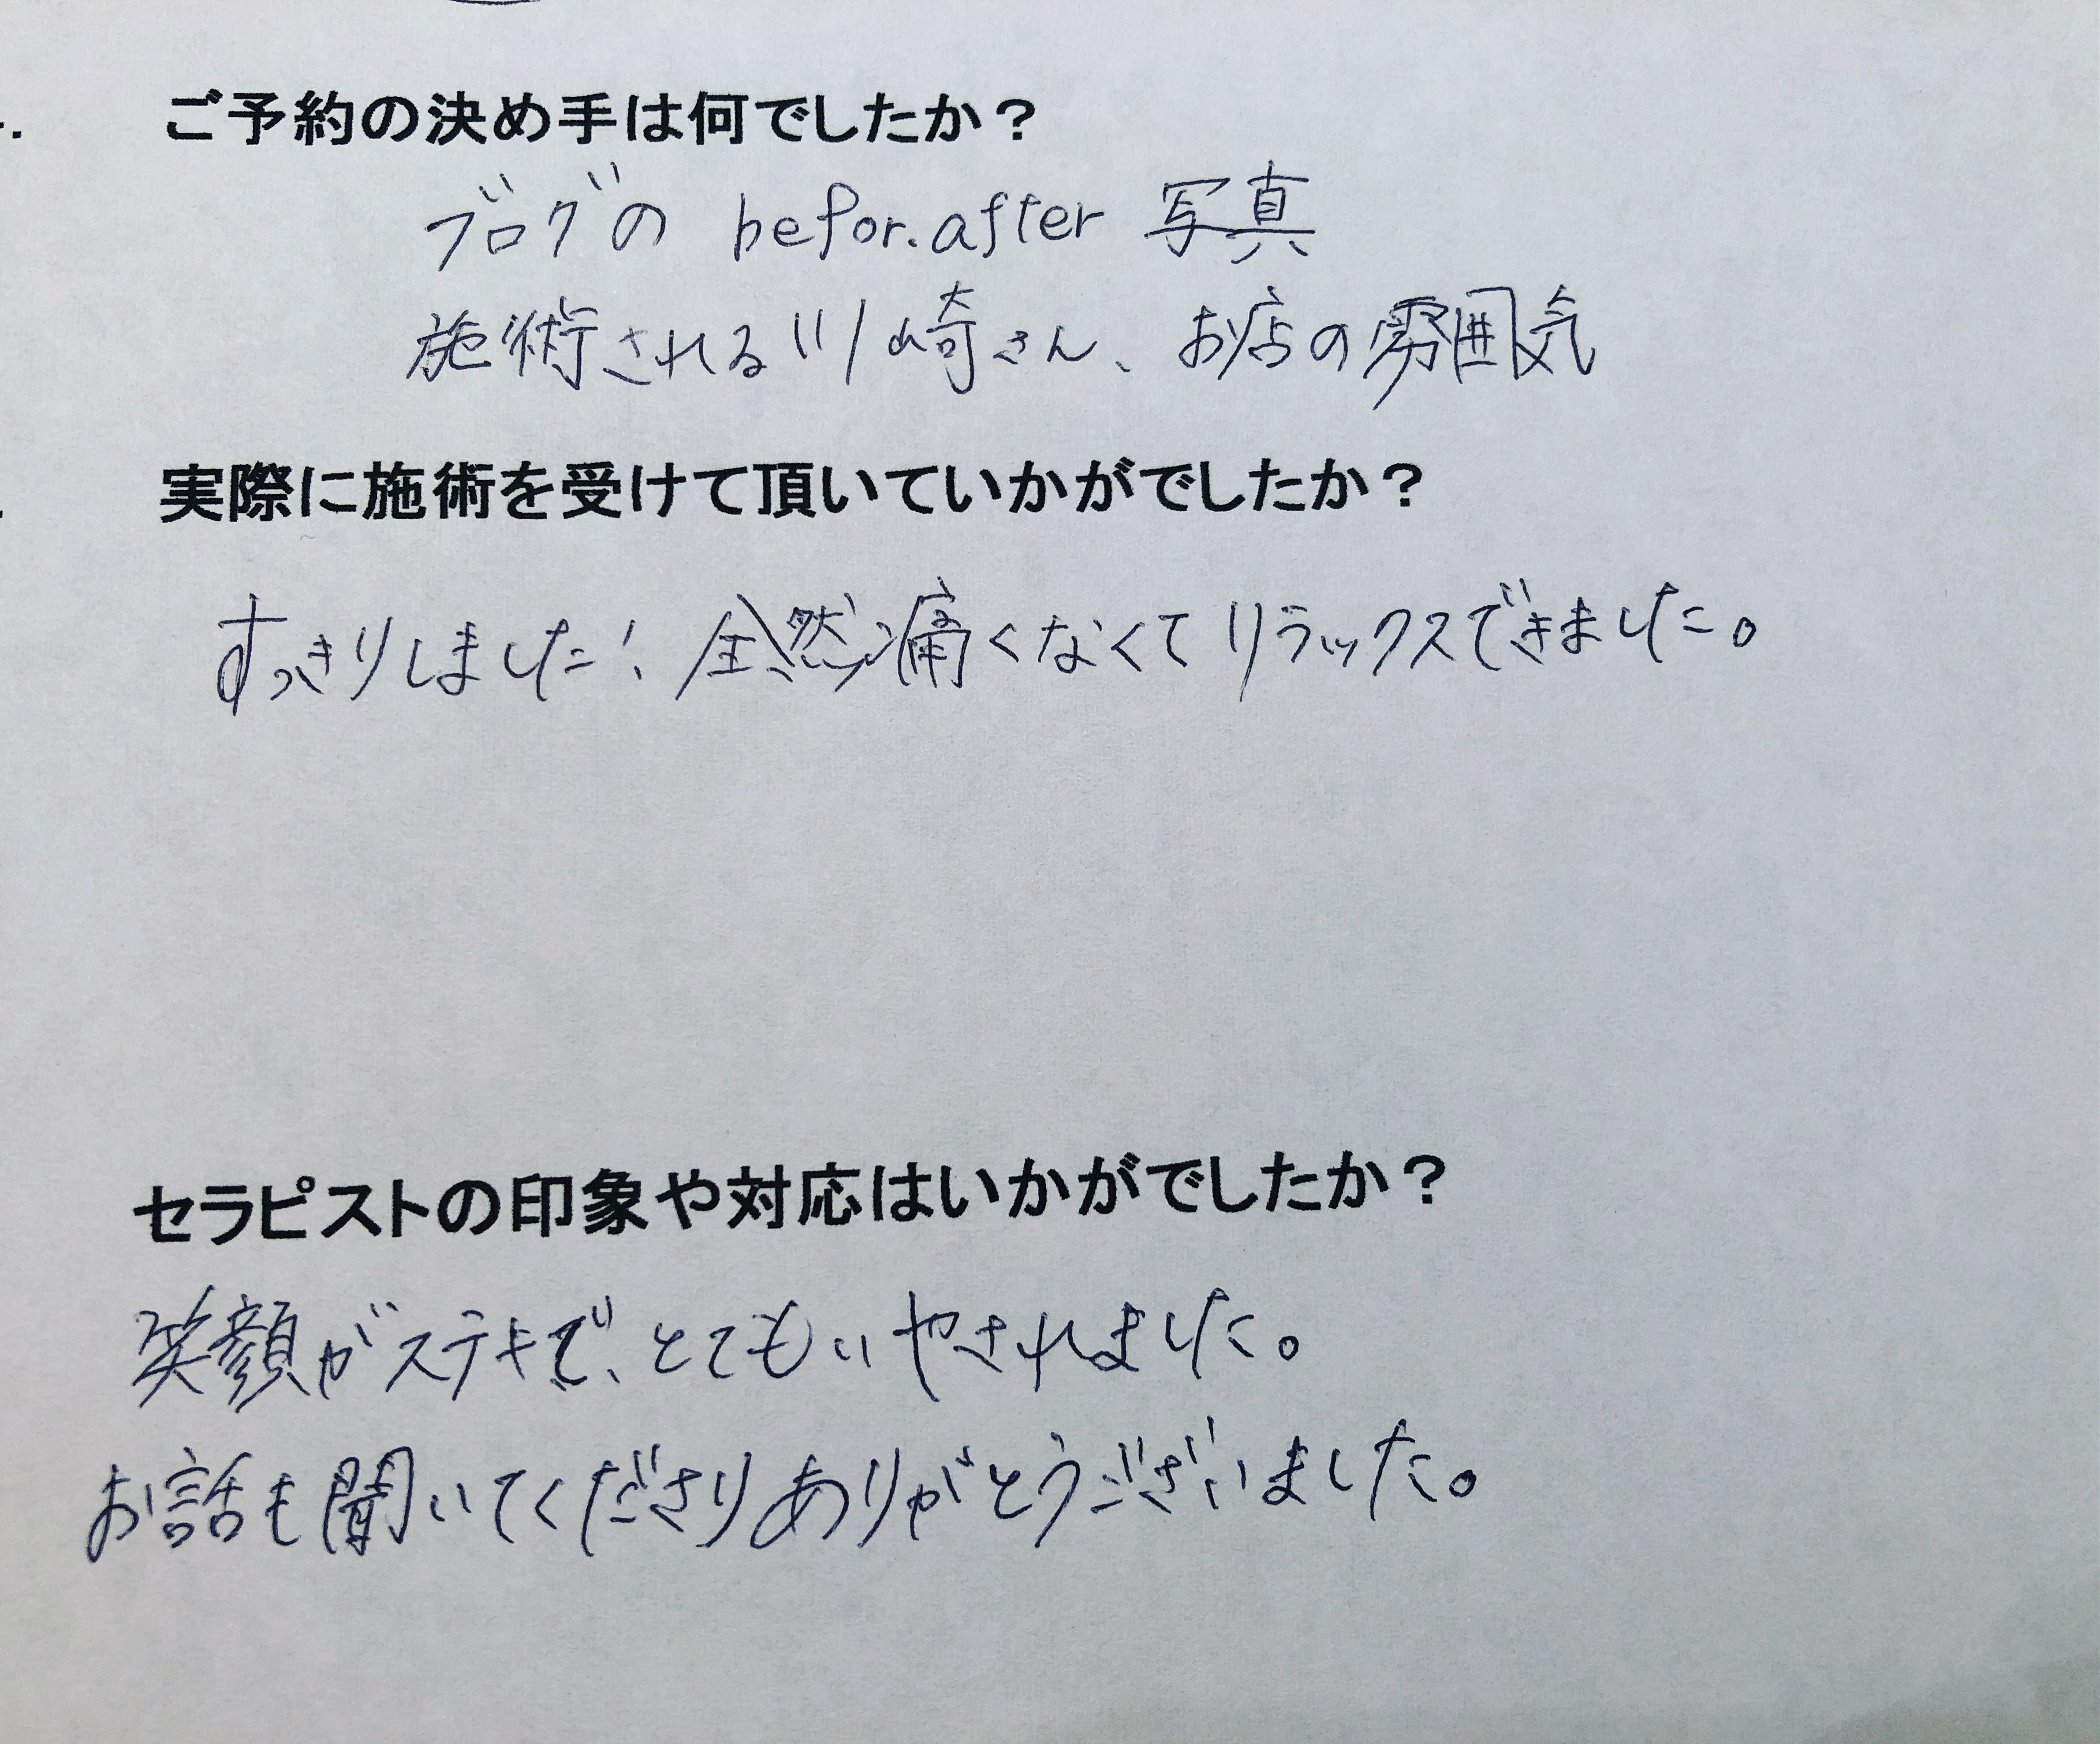 ご予約の決め手は何でしたか？
ブログの befor.after 写真
施術される川崎さん、お店の雰囲気
実際に施術を受けて頂いていかがでしたか？
すっきりしました！全然痛くなくてリラックスできました。
セラピストの印象や対応はいかがでしたか？
笑顔がステキで、とてもいやされました。
お話も聞いてくださりありがとうございました。